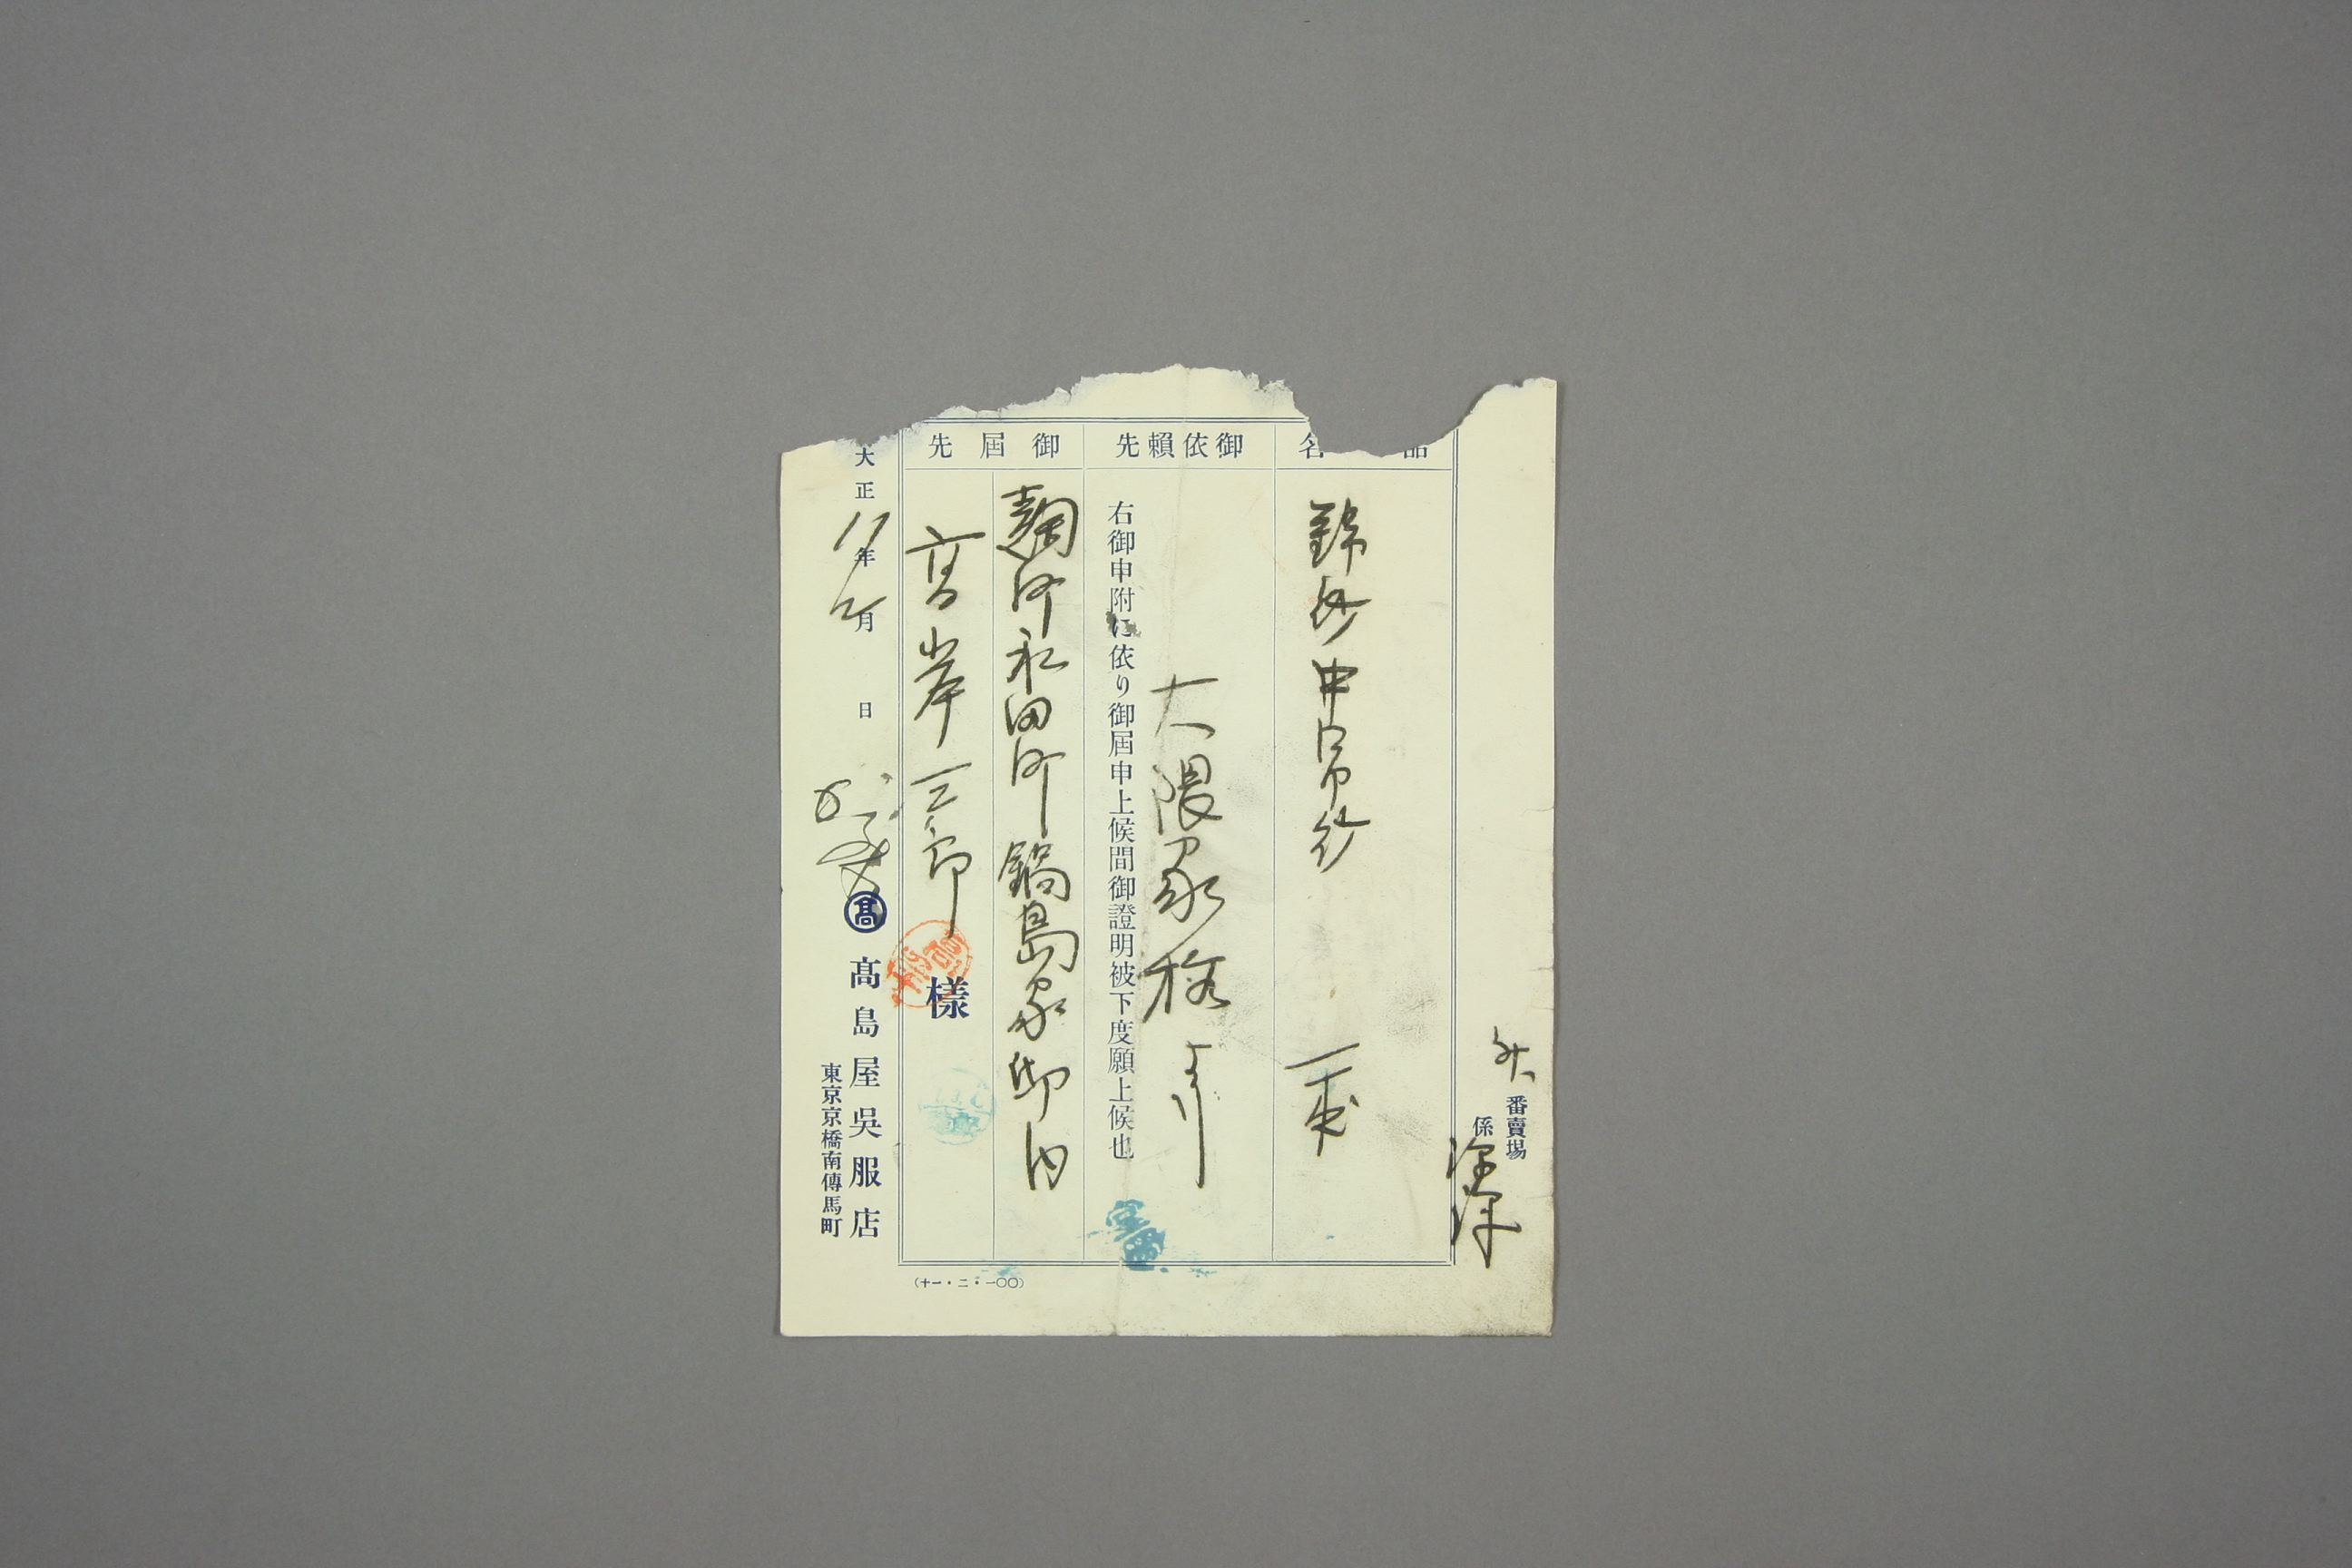 外番賣場
係
品名
錦紗中帛紗 一衣
御依賴先
大隈家様より
右御申附に依り御屆申上候間御證明被下度願上候也
御屆先
麹町永田町鍋島家御内
高岸三郎様
大正11年2月 日
髙 髙島屋吳服店
東京京橋南傳馬町
(十一・二・一〇〇)